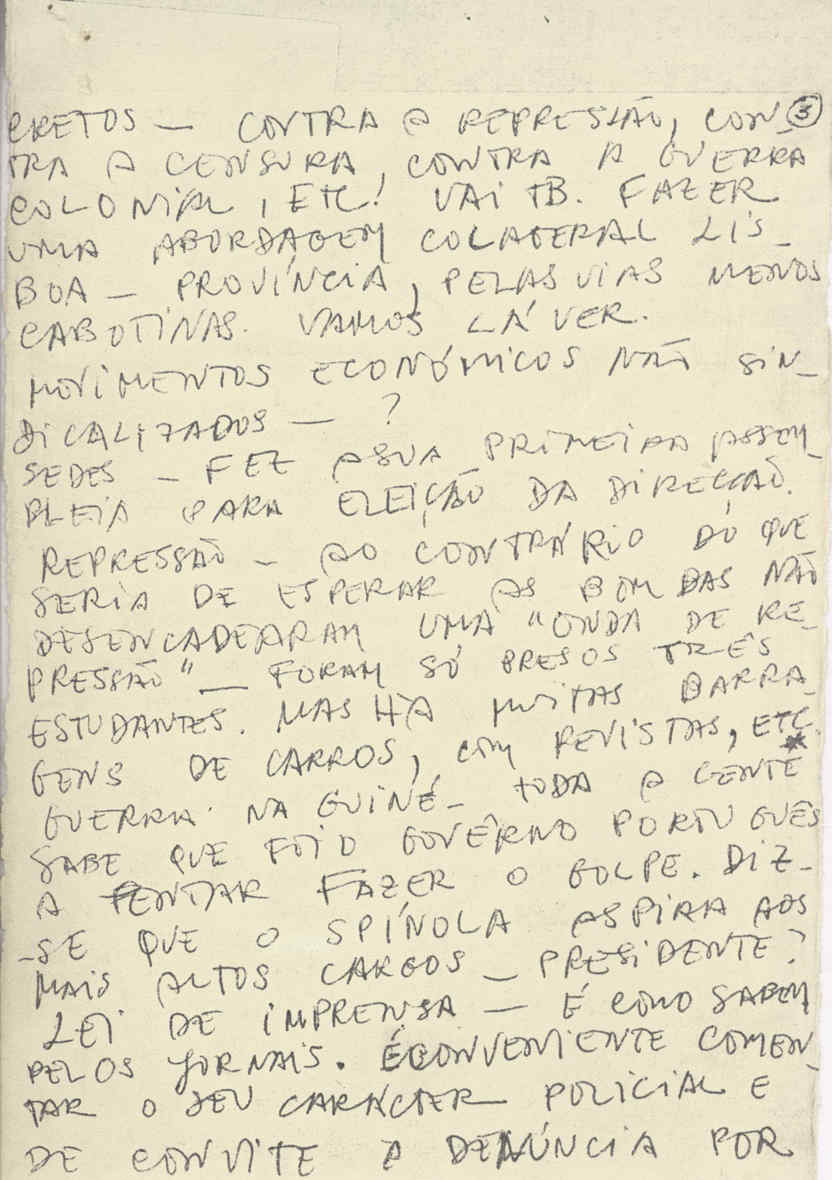 CRETOS — CONTRA A REPRESSÃO, CON- ③
TRA A CENSURA, CONTRA A GUERRA
COLONIAL, ETC! VAI TB. FAZER
UMA ABORDAGEM COLATERAL LIS-
BOA — PROVÍNCIA, PELAS VIAS MENOS
CABOTINAS. VAMOS LÁ VER.
MOVIMENTOS ECONÓMICOS NÃO SIN-
DICALIZADOS — ?
SEDES — FEZ A SUA PRIMEIRA ASSEM-
BLEIA PARA ELEIÇÃO DA DIRECÇÃO.
REPRESSÃO — AO CONTRÁRIO DO QUE
SERIA DE ESPERAR AS BOMBAS NÃO
DESENCADEARAM UMA "ONDA DE RE-
PRESSÃO" — FORAM SÓ PRESOS TRÊS
ESTUDANTES. MAS HÁ MUITAS BARRA-
GENS DE CARROS, COM REVISTAS, ETC.
GUERRA NA GUINÉ — TODA A GENTE
SABE QUE FOI O GOVÊRNO PORTUGUÊS
A TENTAR FAZER O GOLPE. DIZ-
-SE QUE O SPÍNOLA ASPIRA AOS
MAIS ALTOS CARGOS — PRESIDENTE?
LEI DE IMPRENSA — É COMO SABEM
PELOS JORNAIS. É CONVENIENTE COMEN-
TAR O SEU CARÁCTER POLICIAL E
DE CONVITE À DENÚNCIA POR